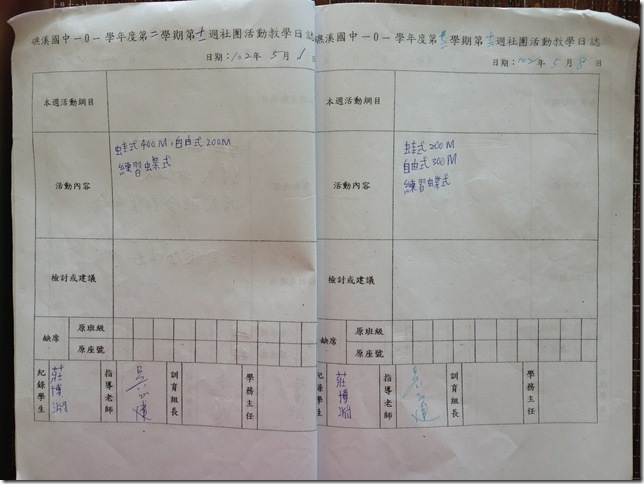 礁溪國中一0一學年度第二學期第十一週社團活動教學日誌
日期：102年 5 月 1 日
本週活動綱目
活動內容
蛙式400M，自由式200M
練習蝶式
檢討或建議
缺席
原班級
原座號
紀錄學生
莊博淵
指導老師
訓育組長
學務主任
礁溪國中一0一學年度第二學期第十二週社團活動教學日誌
日期：102年 5 月 8 日
本週活動綱目
活動內容
蛙式200M
自由式300M
練習蝶式
檢討或建議
缺席
原班級
原座號
紀錄學生
莊博淵
指導老師
訓育組長
學務主任